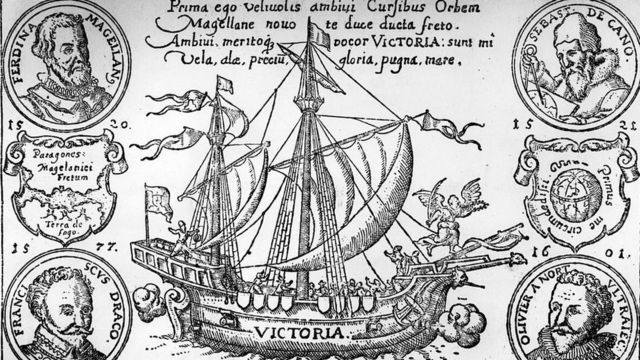 Prima ego velivolis ambivi Cursibus Orbem
Magellane novo te duce ducta freto.
Ambivi, meritoq vocor VICTORIA: sunt mi
Vela, alæ, preciu, gloria, pugna, mare.
FERDINA MAGELLANS
1520.
SEBAST. DE CANO.
1521
Paragones:
Magelanici
Fretum
Terra de
Fogo.
Primus me circumdedisti
1577.
FRANCISCVS DRACO.
1601.
OLIVIER A NORT VLTRAIEC
VICTORIA.